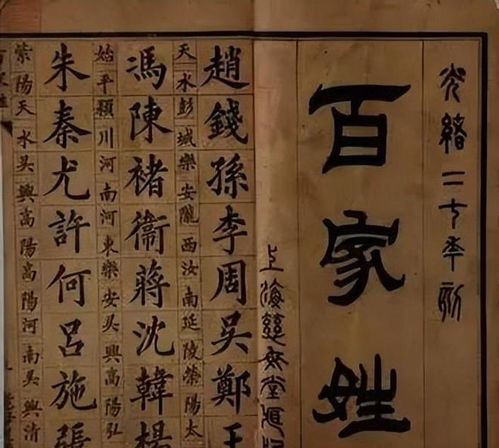 光緒二七年刻
百家姓
上海慈母堂
趙錢孫李周吳鄭王
天水彭城樂安隴西汝南延陵滎陽太
馮陳褚衛蔣沈韓楊
始平潁川河南河東樂安吳興南陽弘
朱秦尤許何呂施張
紫陽天水吳興高陽高陽河南吳興清